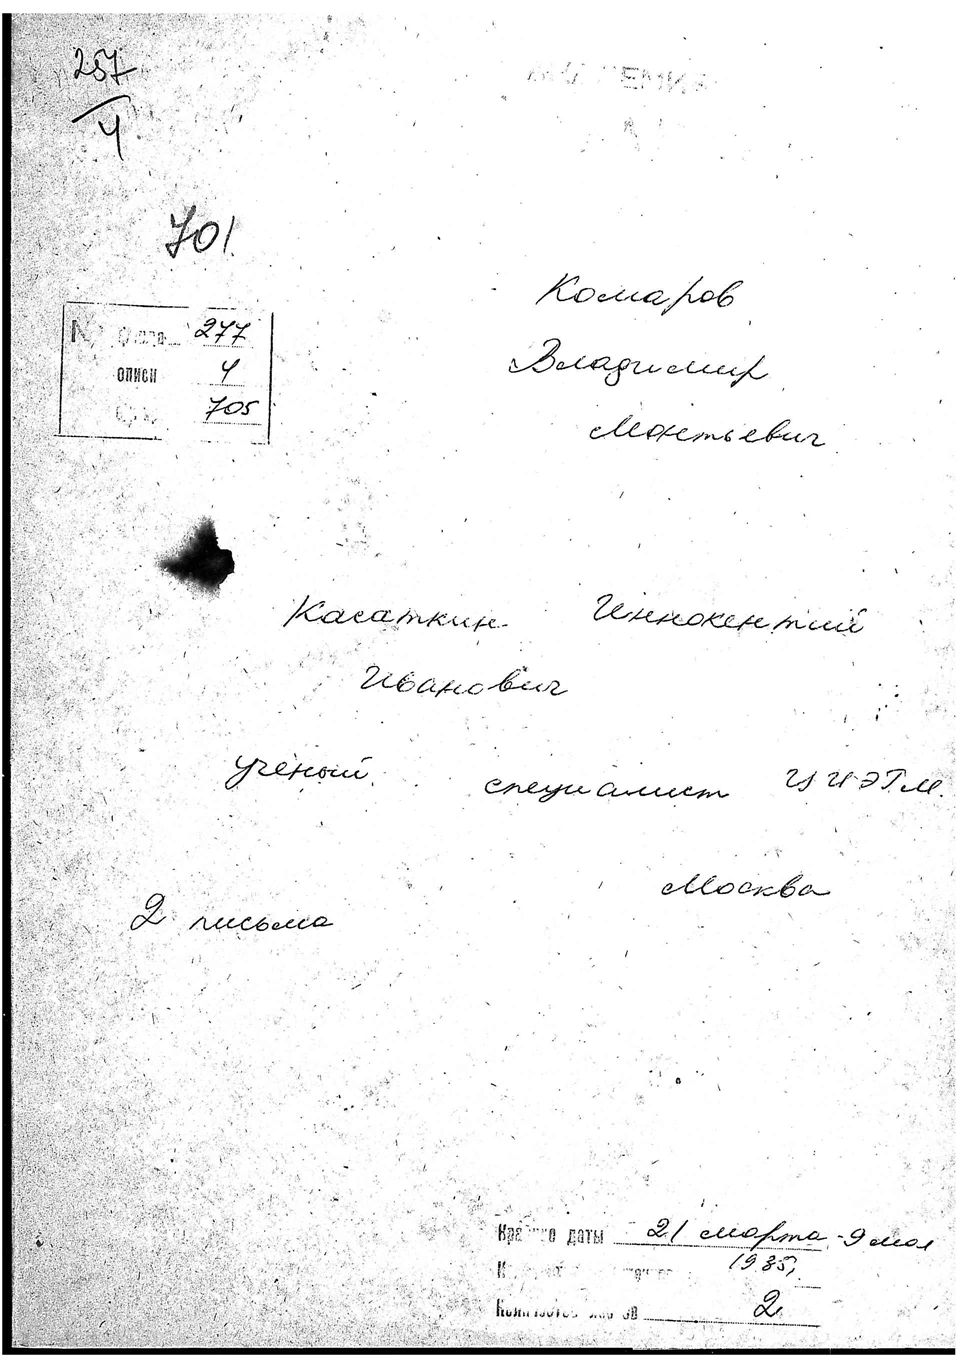 257
4
701.
№ фонда 277
описи 4
705
Комаров
Владимир
Леонтьевич
Касаткин Иннокентий
Иванович
учёный специалист ЦИЭГМ.
Москва
2 письма
Крайние даты 21 марта - 9 мая
1935,
Количество листов 2